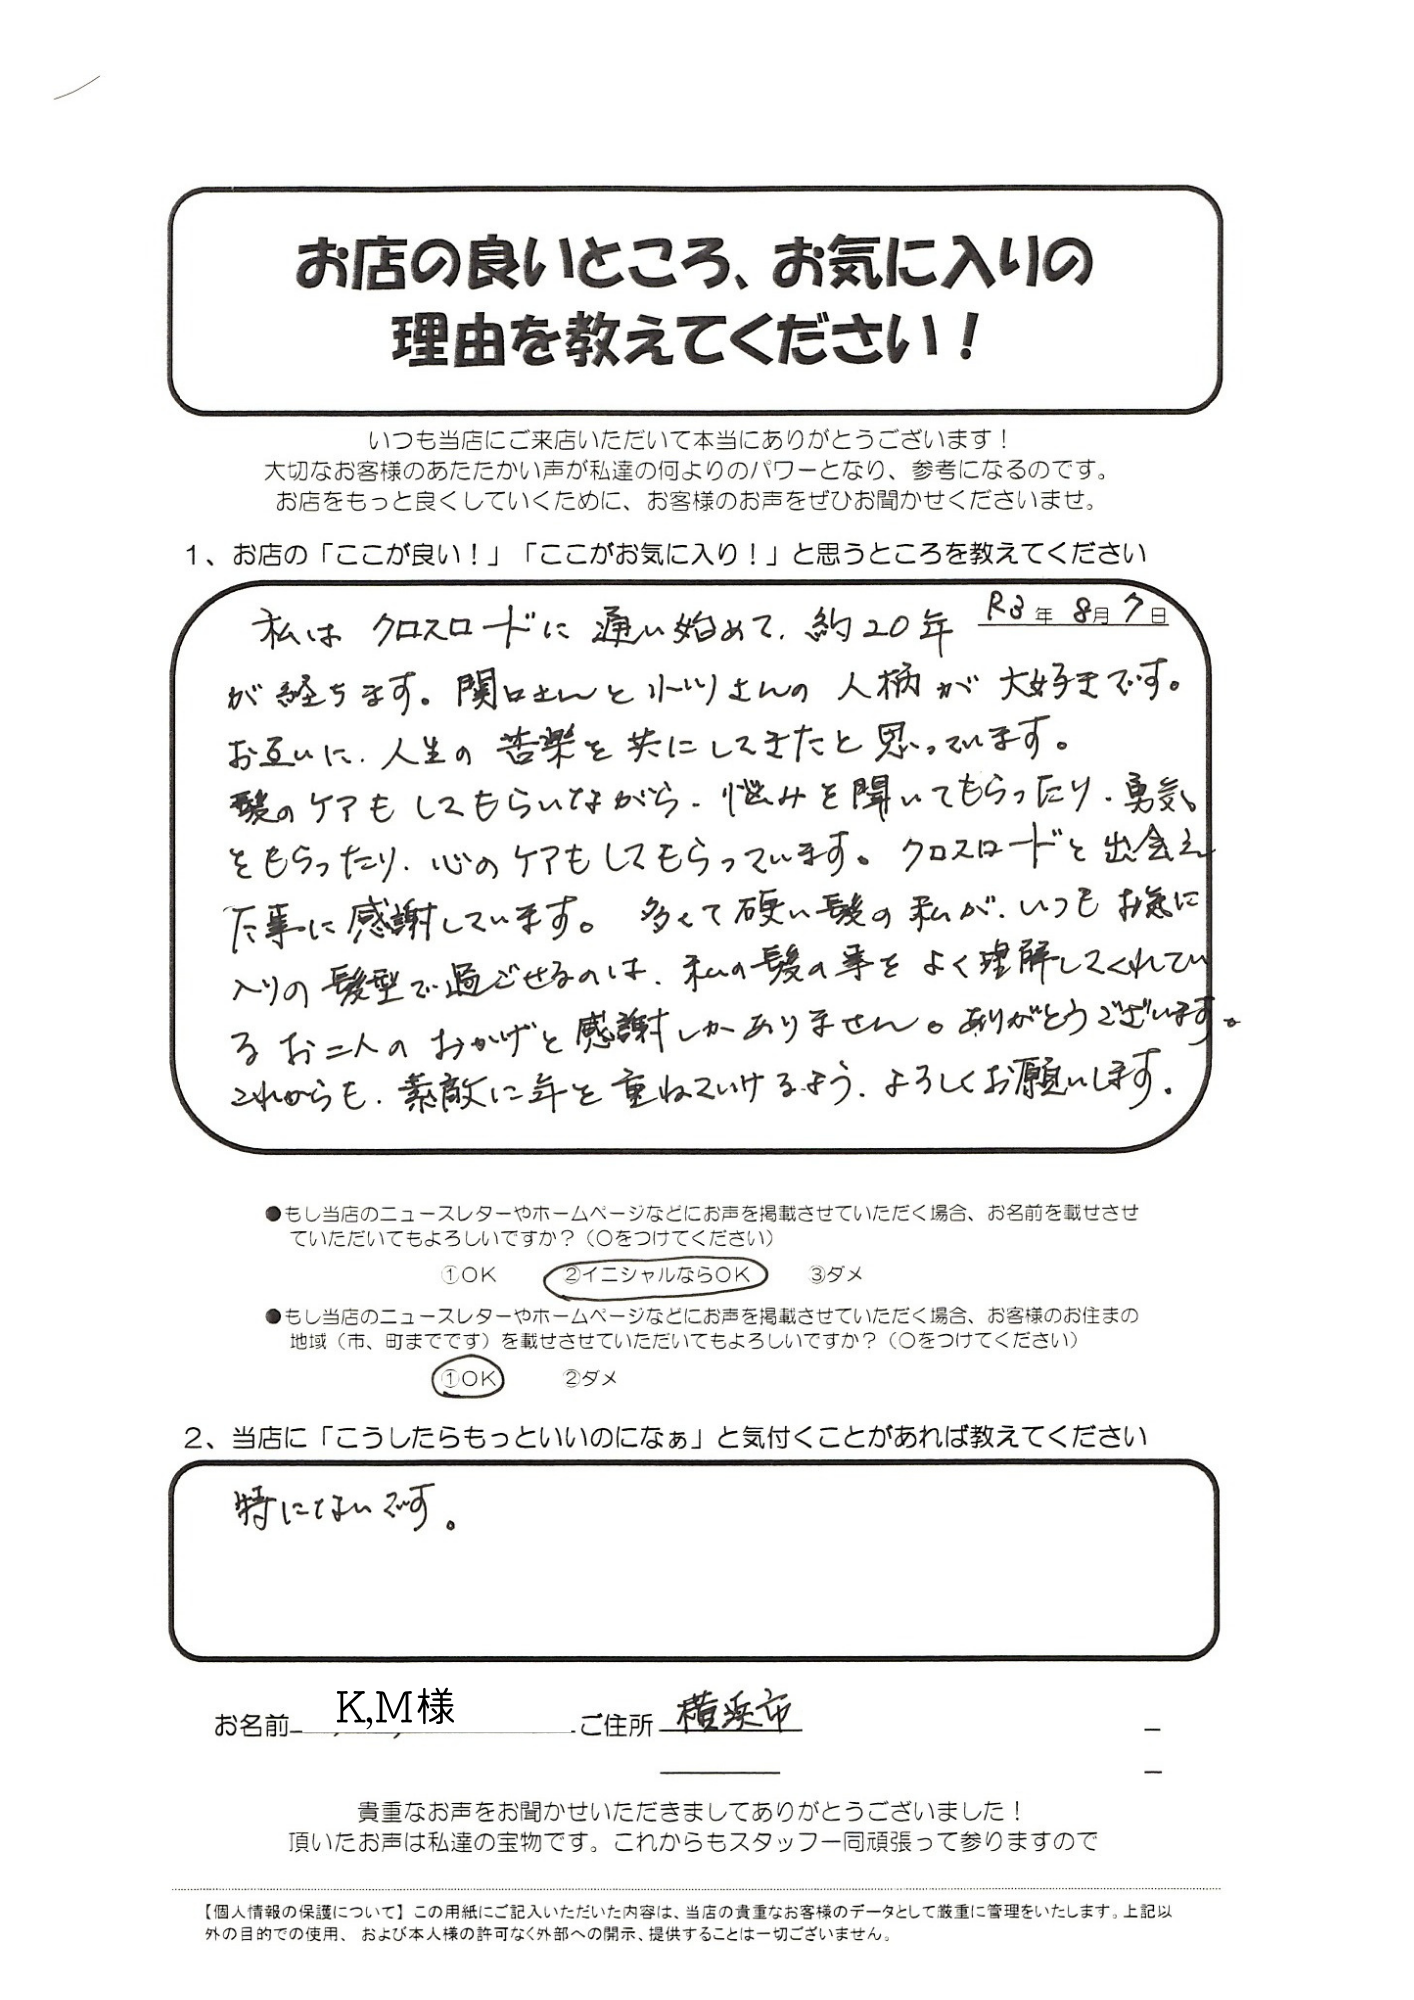 お店の良いところ、お気に入りの
理由を教えてください！
いつも当店にご来店いただいて本当にありがとうございます！
大切なお客様のあたたかい声が私達の何よりのパワーとなり、参考になるのです。
お店をもっと良くしていくために、お客様のお声をぜひお聞かせくださいませ。
１、お店の「ここが良い！」「ここがお気に入り！」と思うところを教えてください
R3年 8月 7日
私は クロスロードに 通い始めて、約20年
が経ちます。関口さんと小ツリさんの 人柄が 大好きです。
お互いに、人生の 苦楽を 共にしてきたと 思っています。
髪のケアも してもらいながら、悩みを聞いてもらったり、勇気
をもらったり、心のケアもしてもらっています。クロスロードと 出会え
た事に感謝しています。 多くて硬い髪の 私が、いつも お気に
入りの髪型で過ごせるのは、私の髪の事を よく理解してくれてい
る お二人の おかげと 感謝しかありません。ありがとうございます。
これからも、素敵に年を 重ねていけるよう、よろしくお願いします。
●もし当店のニュースレターやホームページなどにお声を掲載させていただく場合、お名前を載せさせ
ていただいてもよろしいですか？（○をつけてください）
①OK ②イニシャルならOK ③ダメ
●もし当店のニュースレターやホームページなどにお声を掲載させていただく場合、お客様のお住まの
地域（市、町までです）を載せさせていただいてもよろしいですか？（○をつけてください）
①OK ②ダメ
２、当店に「こうしたらもっといいのになぁ」と気付くことがあれば教えてください
特にないです。
お名前 K,M様 ご住所 横浜市
貴重なお声をお聞かせいただきましてありがとうございました！
頂いたお声は私達の宝物です。これからもスタッフ一同頑張って参りますので
【個人情報の保護について】この用紙にご記入いただいた内容は、当店の貴重なお客様のデータとして厳重に管理をいたします。上記以
外の目的での使用、および本人様の許可なく外部への開示、提供することは一切ございません。